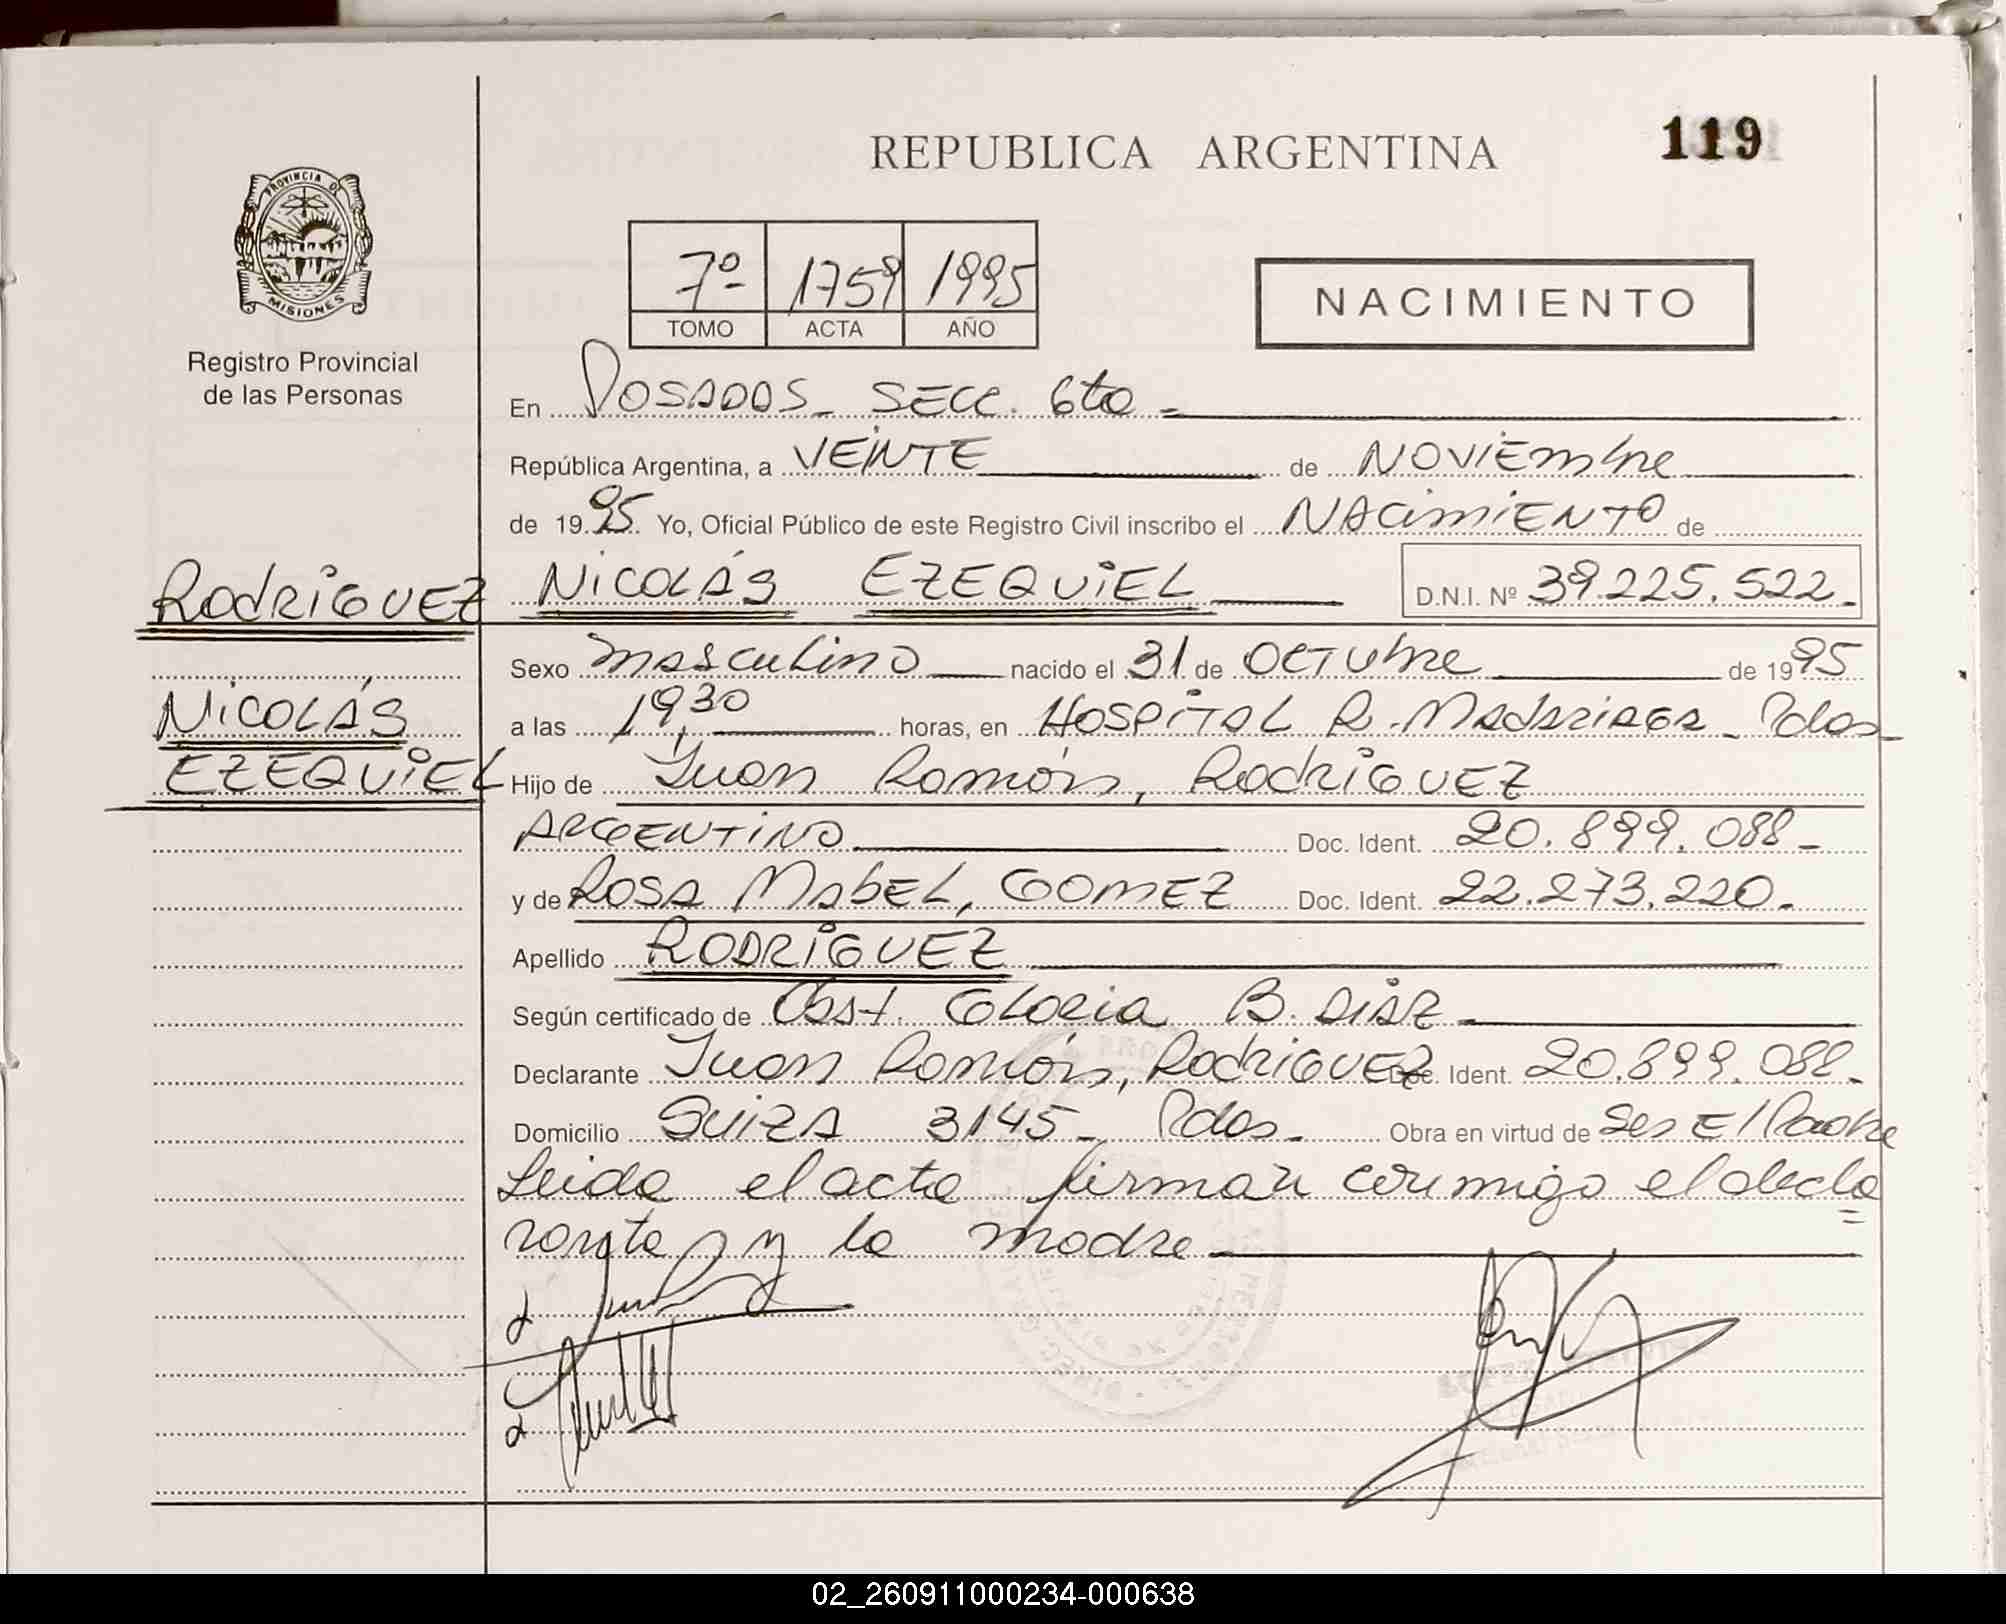 119
REPUBLICA ARGENTINA
PROVINCIA DE
MISIONES
Registro Provincial
de las Personas
7º 1759 1995
TOMO ACTA AÑO
NACIMIENTO
En Posadas Secc. 6ta
República Argentina, a VEINTE de Noviembre
de 1995 Yo, Oficial Público de este Registro Civil inscribo el NACIMIENTO de
RodRiGUEZ NiCOLÁS EZEQUiEL D.N.I. Nº 39.225.522
Sexo masculino nacido el 31 de OCTubre de 1995
NiCOLÁS a las 19,30 horas, en HOSPITAL R. Madariaga Pdas
EZEQUiEL Hijo de Juan Ramón, RodRiGUEZ
ARGENTiNO Doc. Ident. 20.899.088
y de ROSA MabEL, GOMEZ Doc. Ident. 22.273.220
Apellido RODRiGUEZ
Según certificado de Obst. Gloria B. DiAZ
Declarante Juan Ramón, RodriGUEZ Doc. Ident. 20.899.088
Domicilio SUiZA 3145 Pdas Obra en virtud de Ser El Padre
Leida el acta firman conmigo el decla
rante y la madre
02_260911000234-000638